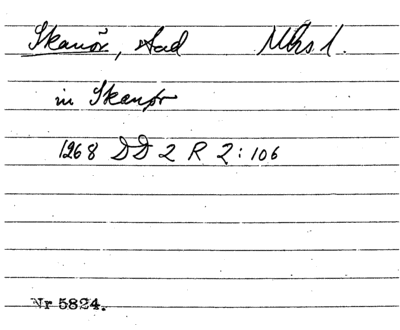 Skanör, stad Mhs l.
in Skanør
1268 DD 2 R 2:106
Nr 5824.